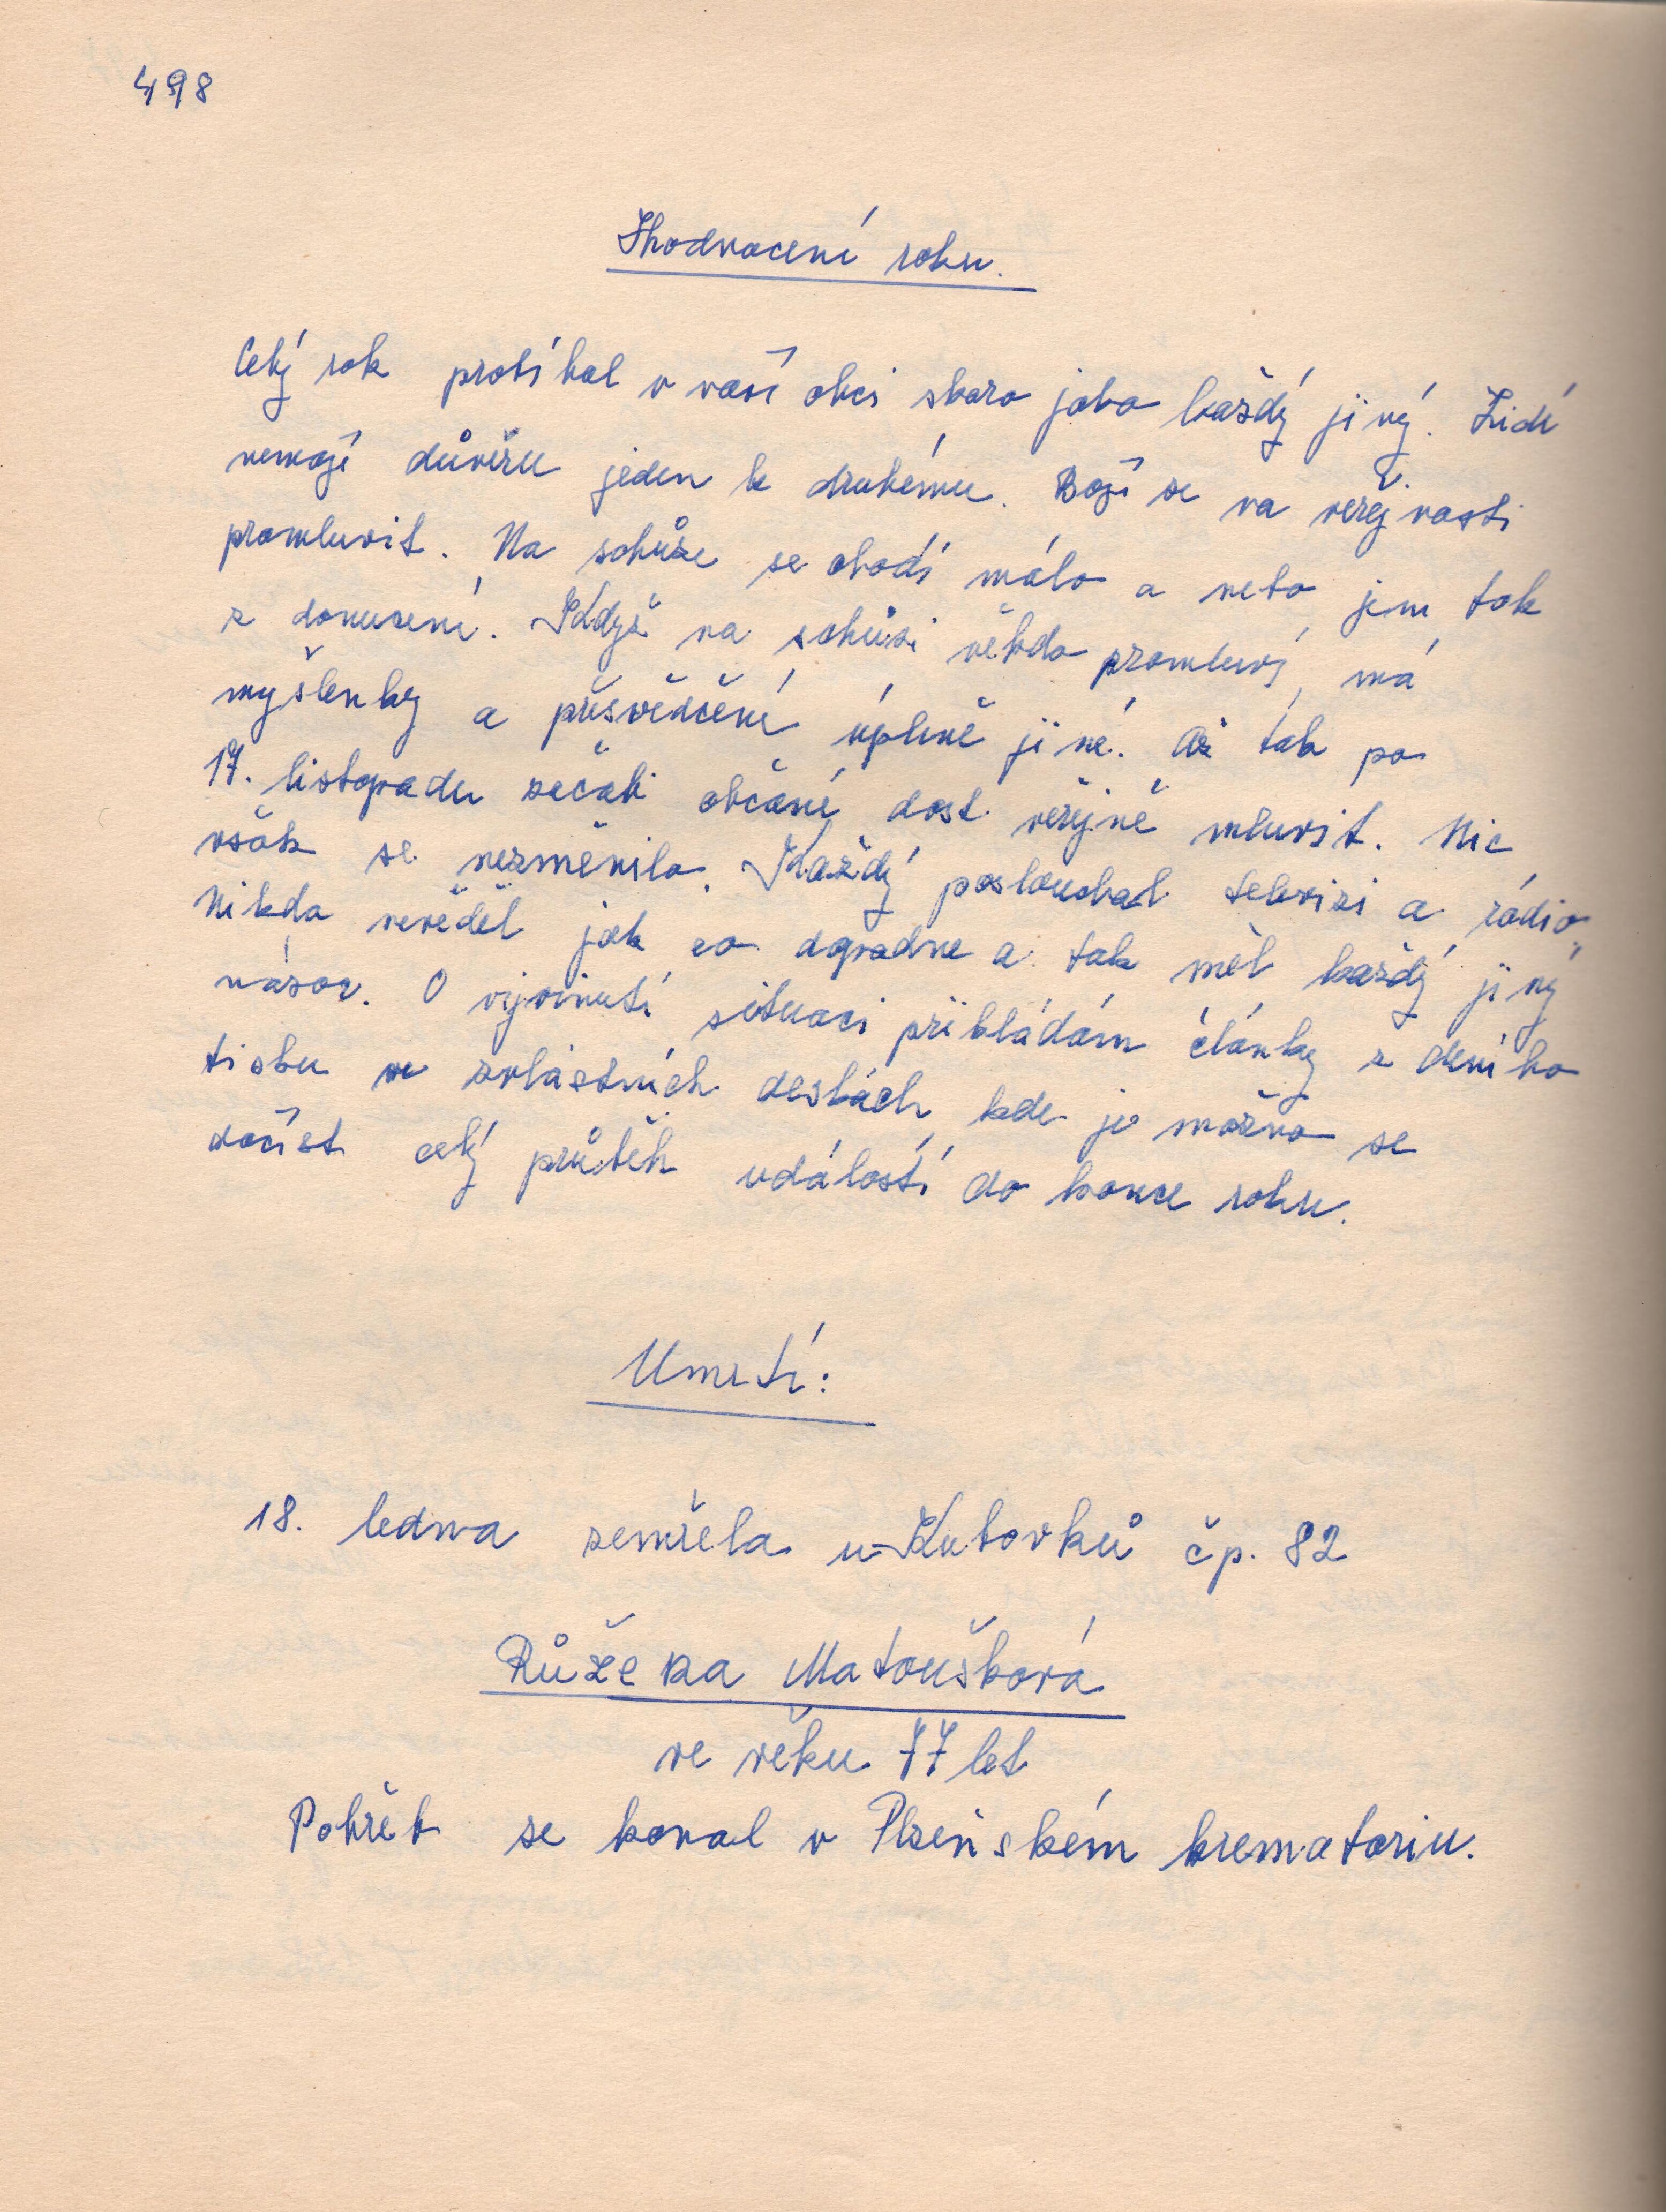 498
Zhodnocení roku.
Celý rok probíhal v naší obci skoro jako každý jiný. Lidé
nemají důvěru jeden k druhému. Bojí se na veřejnosti
promluvit. Na schůze se chodí málo a nebo jen tak
z donucení. Když na schůzi někdo promluví, má
myšlenky a přesvědčení úplně jiné. Až tak po
17. listopadu začali občané dost veřejně mluvit. Nic
však se nezměnilo. Každý poslouchal televizi a rádio.
Nikdo nevěděl jak co dopadne a tak měl každý jiný
názor. O vyvinutí situaci přikládám články z deního
tisku ve zvláštních deskách, kde je možno se
dočíst celý průběh událostí do konce roku.
Umrtí:
18. ledna zemřela u Kutovků čp. 82
Růžena Matoušková
ve věku 77 let
Pohřeb se konal v Plzeňském krematoriu.